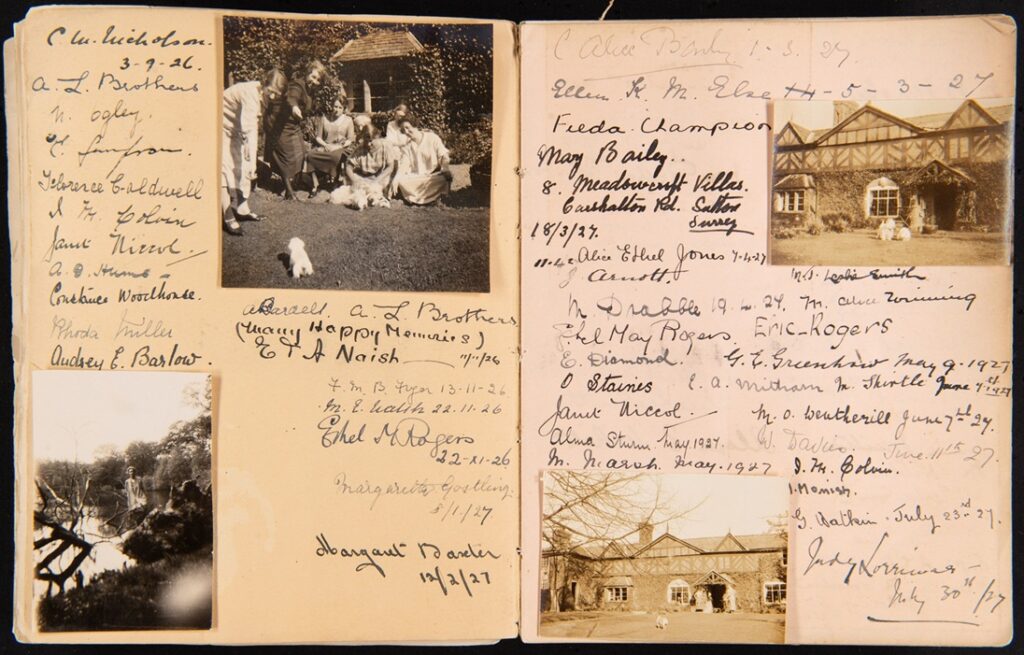 C. M. Nicholson.
3-9-26.
A. L. Brothers
N. Ogley.
Florence Caldwell
I. M. Colvin
Janet Niccol.
A. D. Hume
Constance Woodhouse.
Rhoda Miller
Audrey E. Barlow.
A. L. Brothers
(Many Happy Memories)
E T A Naish
11/11/26
F. M. B. Fryer 13-11-26
M. E. 22.11.26
Ethel M Rogers
22-XI-26
Margaret Gostling.
8/1/27
Margaret Baxter
12/2/27
C Alice Bailey 1-3-27.
Ellen K. M. Else 14-5-3-27
Freda Champion
Mary Bailey..
8. Meadowcroft Villas.
Carshalton Rd. Sutton
Surrey
18/3/27.
Alice Ethel Jones 7-4-27
J Arnott.
M. J. Leslie Smith
M. Drabble 19.4.27. M. Alice Twinning
Ethel May Rogers Eric Rogers
E. Diamond. G. E. Greenhow May 9. 1927
O Staines E. A. M. Thirtle June 1st 1927
Janet Niccol. M. O. Weutherill June 7th 27.
Alma Sturm May 1927. W. Davies June 11th 27.
M. Marsh May. 1927 I. M. Colvin.
G. Watkin. July 23rd 27.
Judy Lorrimer
July 30th /27